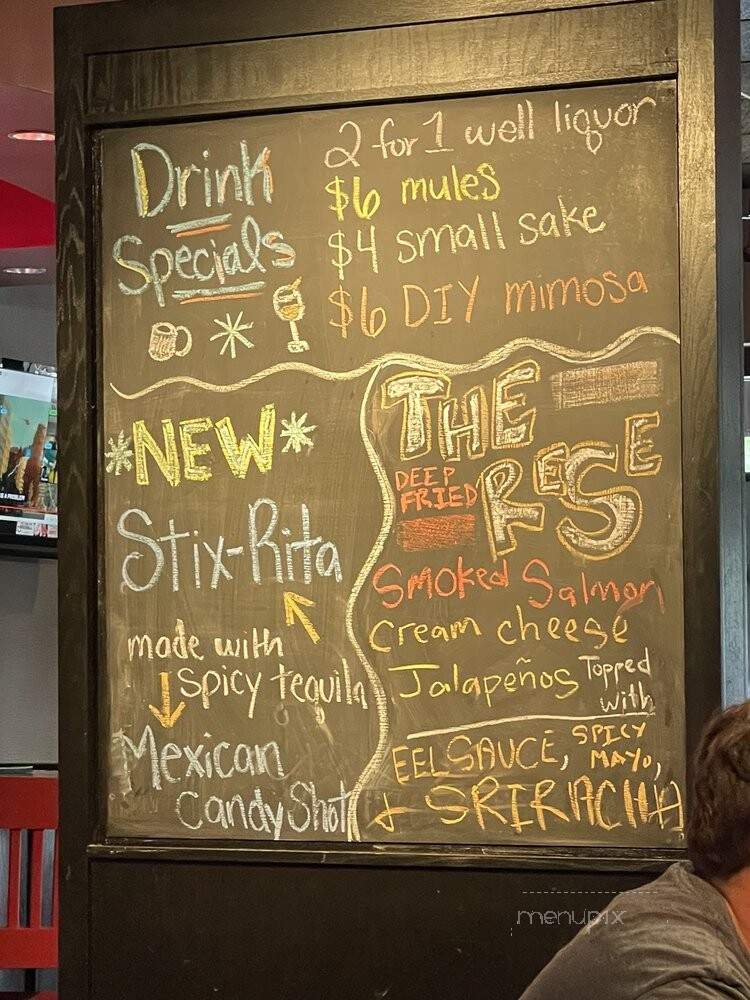 Drink
Specials
2 for 1 well liquor
$6 mules
$4 small sake
$6 DIY mimosa
NEW
Stix-Rita
made with
spicy tequila
Mexican
Candy Shot
THE
DEEP
FRIED
REESE
Smoked Salmon
Cream cheese
Jalapeños Topped
with
EEL SAUCE, SPICY
MAYO,
+ SRIRACHA
menupix